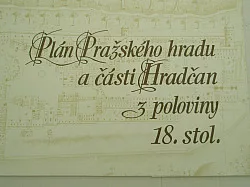 Plán Pražského hradu
a části Hradčan
z poloviny
18. stol.